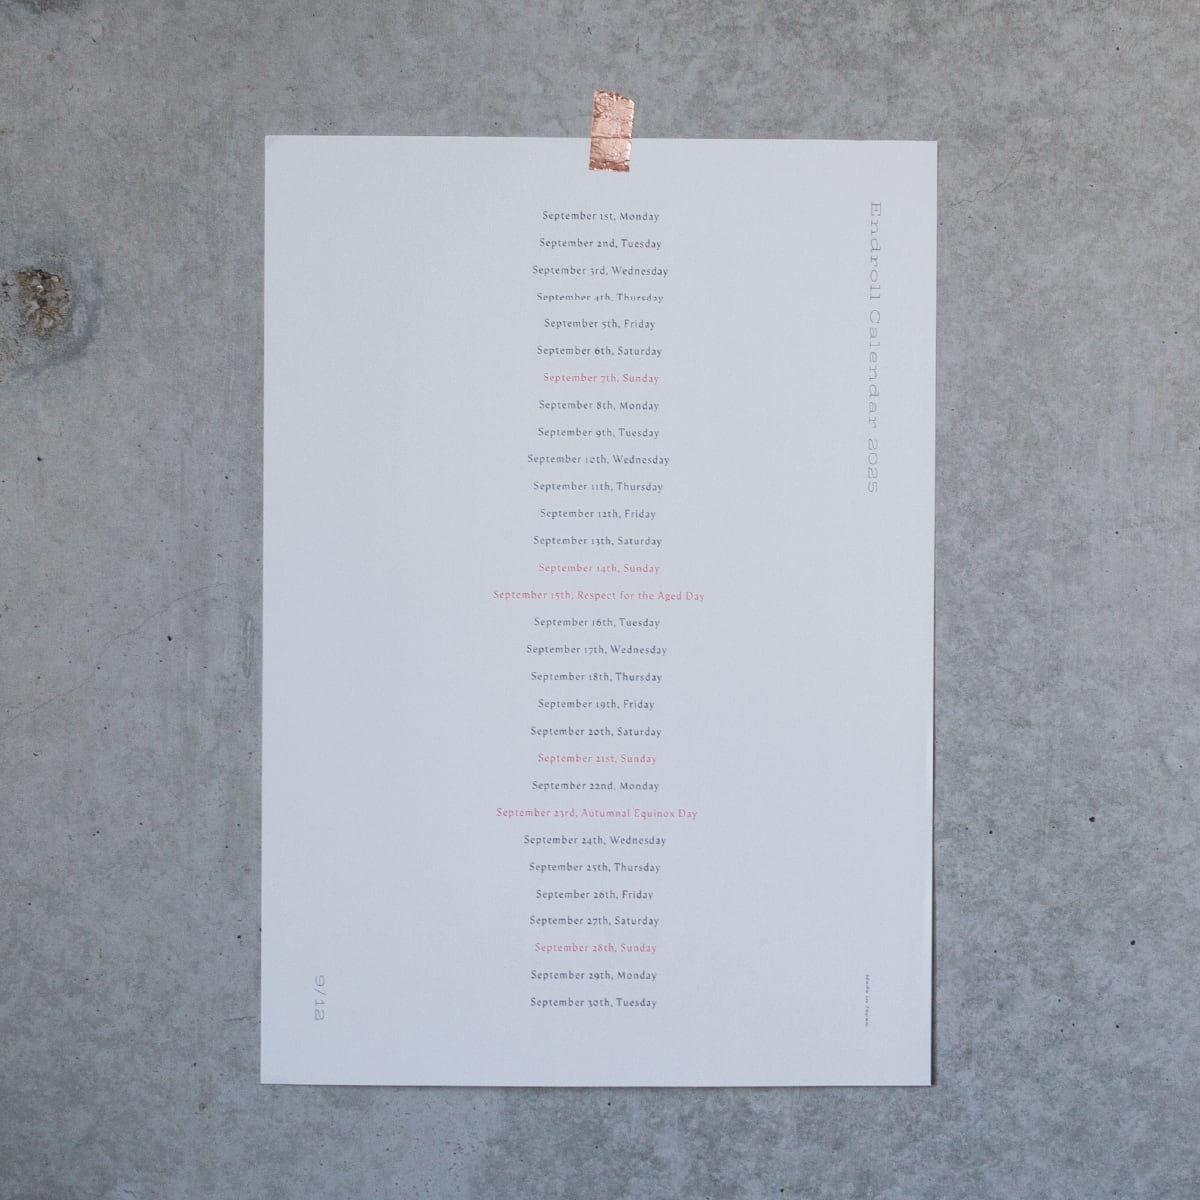 September 1st, Monday
September 2nd, Tuesday
September 3rd, Wednesday
September 4th, Thursday
September 5th, Friday
September 6th, Saturday
September 7th, Sunday
September 8th, Monday
September 9th, Tuesday
September 10th, Wednesday
September 11th, Thursday
September 12th, Friday
September 13th, Saturday
September 14th, Sunday
September 15th, Respect for the Aged Day
September 16th, Tuesday
September 17th, Wednesday
September 18th, Thursday
September 19th, Friday
September 20th, Saturday
September 21st, Sunday
September 22nd, Monday
September 23rd, Autumnal Equinox Day
September 24th, Wednesday
September 25th, Thursday
September 26th, Friday
September 27th, Saturday
September 28th, Sunday
September 29th, Monday
September 30th, Tuesday
Endroll Calendar 2025
9/12
Made in Japan